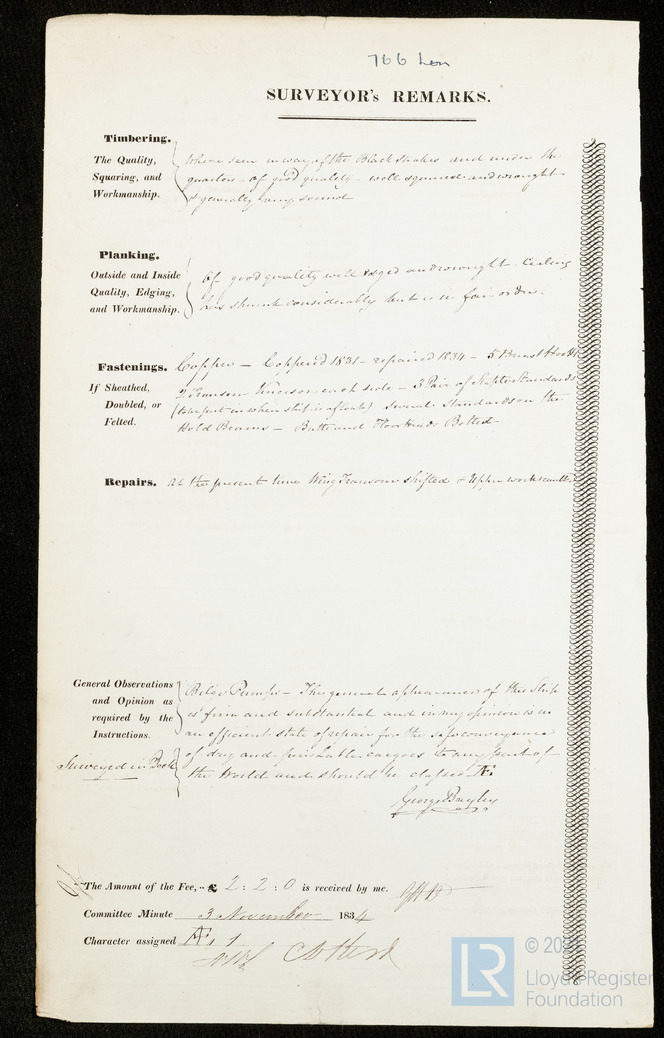 766 Lon
SURVEYOR's REMARKS.
Timbering.
The Quality, Squaring, and Workmanship.
Where seen in way of the Black strakes and under the
quarters of good quality - well squared and wrought
& generally very sound
Planking.
Outside and Inside Quality, Edging, and Workmanship.
Of good quality well edged and wrought. Ceiling
has shrunk considerably but is in fair order.
Fastenings.
If Sheathed, Doubled, or Felted.
Copper - Coppered 1831 - repaired 1834 - 5 Breast Hooks
2 Transom Knees on each side - 3 Pair of Standards
(to be put in when ship is afloat) Several Standards on the
Hold Beams - Butts and Floor Heads Bolted
Repairs.
At the present time Wing Transom shifted & Upper works
General Observations and Opinion as required by the Instructions.
Pumps - The general appearance of this Ship
is firm and substantial and in my opinion is in
an efficient state of repair for the safe conveyance
of dry and perishable cargoes to any part of
the World and should be classed Æ1
Surveyed in Dock
George Bayley
The Amount of the Fee, £ 2 : 2 : 0 is received by me.
Committee Minute 3 November 1834
Character assigned Æ 1
© 20
Lloyd's Register
Foundation
LR